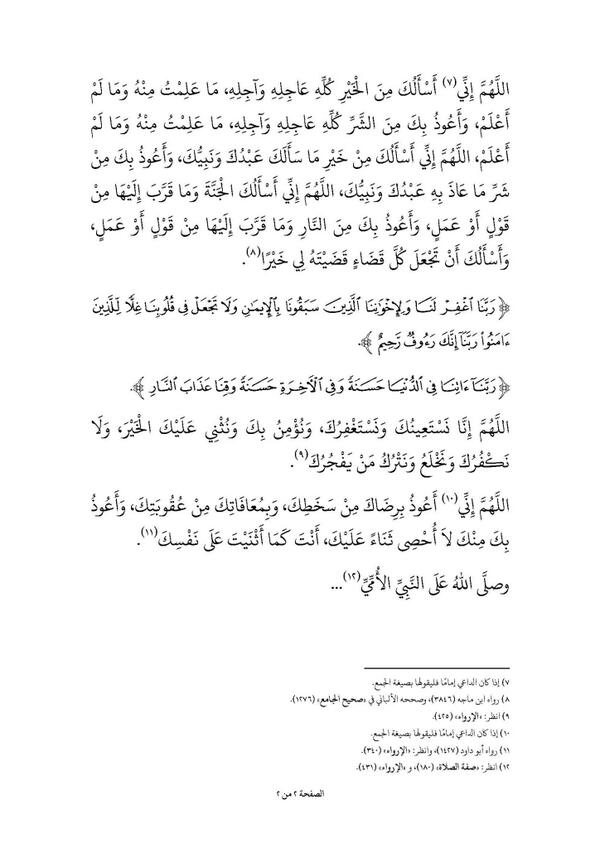 اللَّهُمَّ إِنِّي(٧) أَسْأَلُكَ مِنَ الْخَيْرِ كُلِّهِ عَاجِلِهِ وَآجِلِهِ، مَا عَلِمْتُ مِنْهُ وَمَا لَمْ
أَعْلَمْ، وَأَعُوذُ بِكَ مِنَ الشَّرِّ كُلِّهِ عَاجِلِهِ وَآجِلِهِ، مَا عَلِمْتُ مِنْهُ وَمَا لَمْ
أَعْلَمْ، اللَّهُمَّ إِنِّي أَسْأَلُكَ مِنْ خَيْرِ مَا سَأَلَكَ عَبْدُكَ وَنَبِيُّكَ، وَأَعُوذُ بِكَ مِنْ
شَرِّ مَا عَاذَ بِهِ عَبْدُكَ وَنَبِيُّكَ، اللَّهُمَّ إِنِّي أَسْأَلُكَ الْجَنَّةَ وَمَا قَرَّبَ إِلَيْهَا مِنْ
قَوْلٍ أَوْ عَمَلٍ، وَأَعُوذُ بِكَ مِنَ النَّارِ وَمَا قَرَّبَ إِلَيْهَا مِنْ قَوْلٍ أَوْ عَمَلٍ،
وَأَسْأَلُكَ أَنْ تَجْعَلَ كُلَّ قَضَاءٍ قَضَيْتَهُ لِي خَيْرًا(٨).
﴿ رَبَّنَا ٱغْفِرْ لَنَا وَلِإِخْوَٰنِنَا ٱلَّذِينَ سَبَقُونَا بِٱلْإِيمَٰنِ وَلَا تَجْعَلْ فِى قُلُوبِنَا غِلًّا لِّلَّذِينَ
ءَامَنُوا۟ رَبَّنَآ إِنَّكَ رَءُوفٌ رَّحِيمٌ ﴾.
﴿ رَبَّنَآ ءَاتِنَا فِى ٱلدُّنْيَا حَسَنَةً وَفِى ٱلْآخِرَةِ حَسَنَةً وَقِنَا عَذَابَ ٱلنَّارِ ﴾.
اللَّهُمَّ إِنَّا نَسْتَعِينُكَ وَنَسْتَغْفِرُكَ، وَنُؤْمِنُ بِكَ وَنُثْنِي عَلَيْكَ الْخَيْرَ، وَلَا
نَكْفُرُكَ وَنَخْلَعُ وَنَتْرُكُ مَنْ يَفْجُرُكَ(٩).
اللَّهُمَّ إِنِّي(١٠) أَعُوذُ بِرِضَاكَ مِنْ سَخَطِكَ، وَبِمُعَافَاتِكَ مِنْ عُقُوبَتِكَ، وَأَعُوذُ
بِكَ مِنْكَ لاَ أُحْصِى ثَنَاءً عَلَيْكَ، أَنْتَ كَمَا أَثْنَيْتَ عَلَى نَفْسِكَ(١١).
وصلَّى اللهُ عَلَى النَّبِيِّ الأُمِّيِّ(١٢)...
٧) إذا كان الداعي إمامًا فليقولها بصيغة الجمع.
٨) رواه ابن ماجه (٣٨٤٦)، وصححه الألباني في «صحيح الجامع» (١٢٧٦).
٩) انظر: «الإرواء» (٤٢٥).
١٠) إذا كان الداعي إمامًا فليقولها بصيغة الجمع.
١١) رواه أبو داود (١٤٢٧)، وانظر: «الإرواء» (٣٤٠).
١٢) انظر: «صفة الصلاة» (١٨٠)، و «الإرواء» (٤٣١).
الصفحة ٢ من ٢